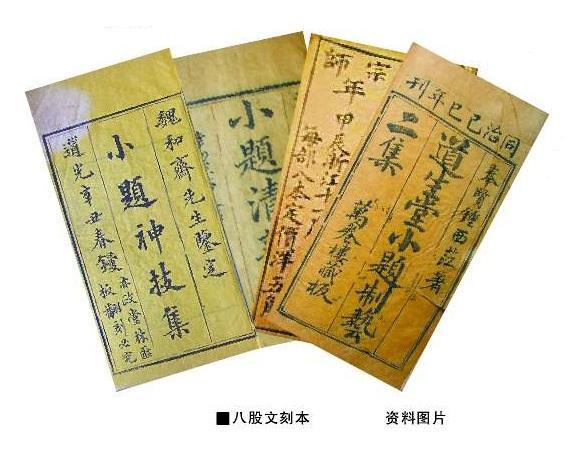 魏和齋先生鑒定
小題神技集
道光辛丑春鐫
板翻刻必究
小題清
宗
師
年
甲辰浙江
每部八本定價洋五角
同治己巳年刊
奉賢鍾西
著
道生堂小題制藝
二集
萬卷樓藏板
■八股文刻本
资料图片